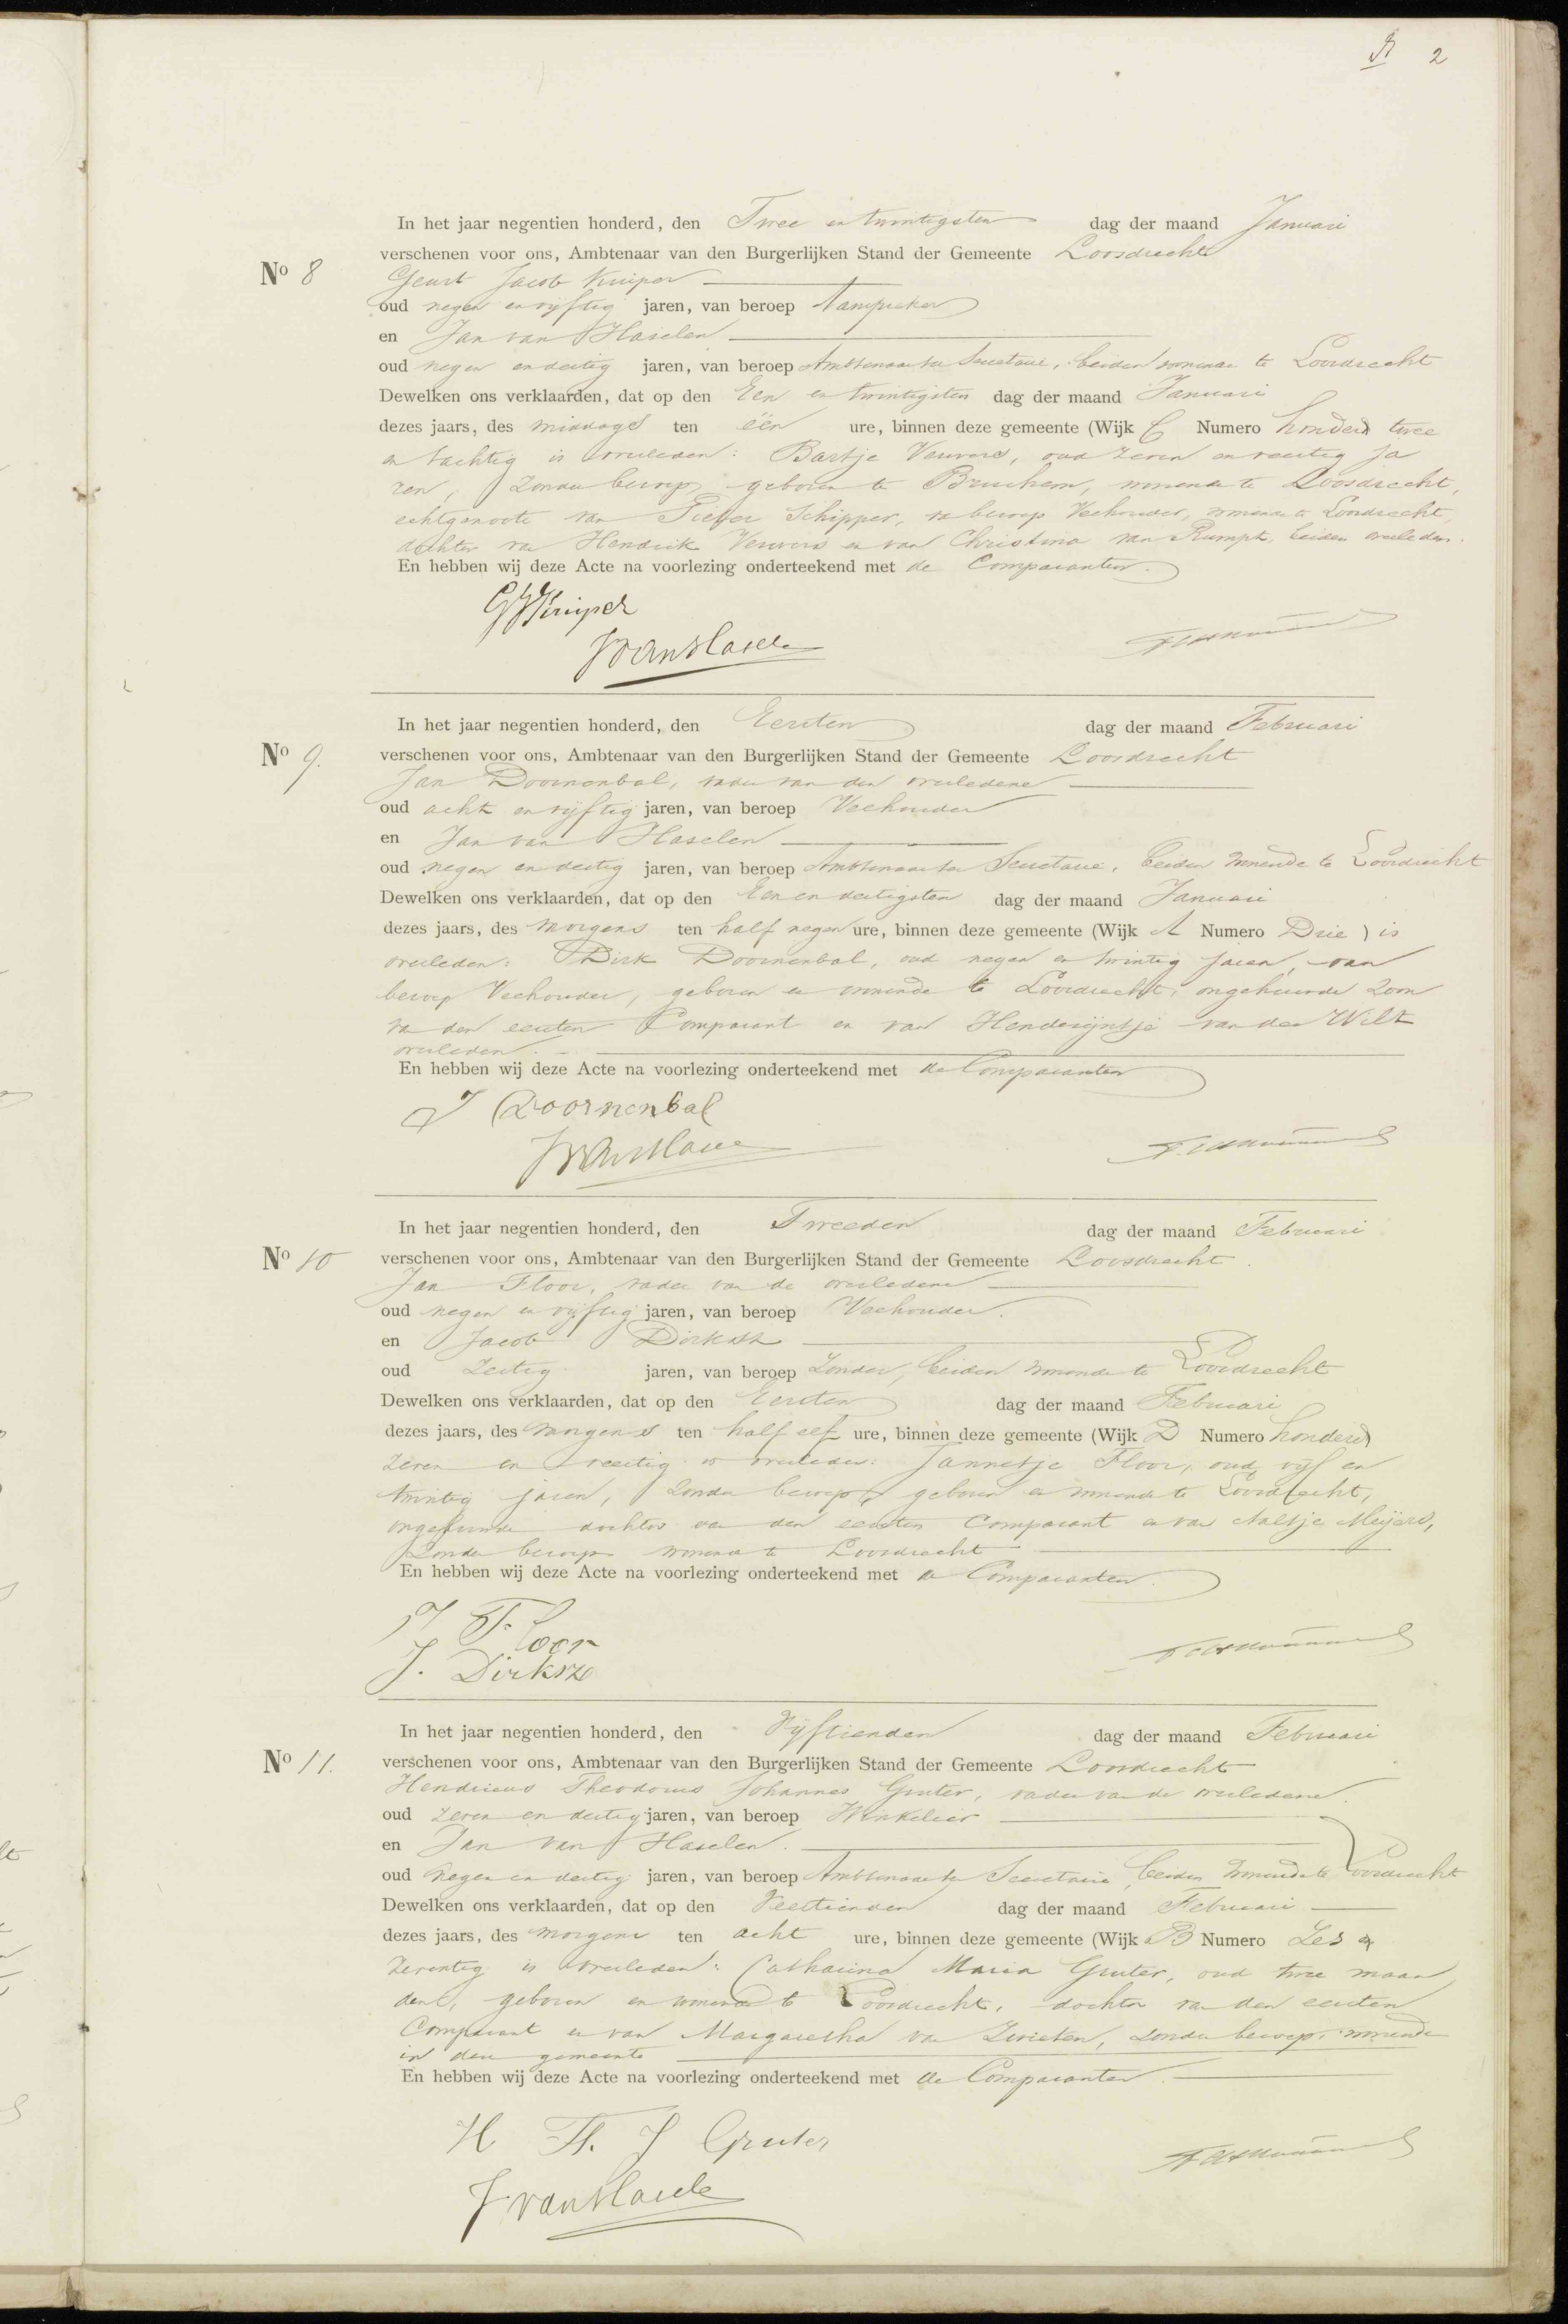 2
In het jaar negentien honderd, den Twee en twintigsten dag der maand Januari
verschenen voor ons, Ambtenaar van den Burgerlijken Stand der Gemeente Loosdrecht
No 8
Geurt Jacob Kuiper
oud negen en vijftig jaren, van beroep
en Jan van Haselen
oud negen en dertig jaren, van beroep Ambtenaar ter Secretarie, beiden wonende te Loosdrecht
Dewelken ons verklaarden, dat op den Een en twintigsten dag der maand Januari
dezes jaars, des middags ten één ure, binnen deze gemeente (Wijk C Numero honderd twee
en tachtig is overleden: Bartje Verwers, oud zeven en veertig ja
ren, zonder beroep, geboren te Bruchem, wonende te Loosdrecht,
echtgenoote van Pieter Schipper, van beroep Veehouder, wonende te Loosdrecht,
dochter van Hendrik Verwers en van Christina van Rumpt, beiden overleden.
En hebben wij deze Acte na voorlezing onderteekend met de Comparanten.
GJKuiper
JvanHasele
In het jaar negentien honderd, den Eersten dag der maand Februari
No 9.
verschenen voor ons, Ambtenaar van den Burgerlijken Stand der Gemeente Loosdrecht
Jan Doornenbal, vader van den overledene
oud acht en vijftig jaren, van beroep Veehouder
en Jan van Haselen
oud negen en dertig jaren, van beroep Ambtenaar ter Secretarie, beiden wonende te Loosdrecht
Dewelken ons verklaarden, dat op den Een en dertigsten dag der maand Januari
dezes jaars, des morgens ten half negen ure, binnen deze gemeente (Wijk A Numero Drie) is
overleden: Dirk Doornenbal, oud negen en twintig jaren, van
beroep Veehouder, geboren en wonende te Loosdrecht, ongehuwde zoon
van den eersten Comparant en van Henderijntje van der Wilt
overleden.
En hebben wij deze Acte na voorlezing onderteekend met de Comparanten
J Doornenbal
JvanHasele
In het jaar negentien honderd, den Tweeden dag der maand Februari
No 10
verschenen voor ons, Ambtenaar van den Burgerlijken Stand der Gemeente Loosdrecht.
Jan Floor, vader van de overledene
oud negen en vijftig jaren, van beroep Veehouder.
en Jacob Dirksz
oud Zestig jaren, van beroep Zonder, beiden wonende te Loosdrecht
Dewelken ons verklaarden, dat op den Eersten dag der maand Februari
dezes jaars, des morgens ten half elf ure, binnen deze gemeente (Wijk D Numero honderd
zeven en veertig is overleden: Jannetje Floor, oud vijf en
twintig jaren, zonder beroep, geboren en wonende te Loosdrecht,
ongehuwde dochter van den eersten Comparant en van Aaltje Meijers,
zonder beroep wonende te Loosdrecht
En hebben wij deze Acte na voorlezing onderteekend met de Comparanten.
J Floor
J. Dirksz
In het jaar negentien honderd, den Vijftienden dag der maand Februari
No 11.
verschenen voor ons, Ambtenaar van den Burgerlijken Stand der Gemeente Loosdrecht
Hendricus Theodorus Johannes Gruter, vader van de overledene.
oud zeven en dertig jaren, van beroep Winkelier
en Jan van Haselen.
oud negen en dertig jaren, van beroep Ambtenaar ter Secretarie, beiden wonende te Loosdrecht
Dewelken ons verklaarden, dat op den Veertienden dag der maand Februari
dezes jaars, des morgens ten acht ure, binnen deze gemeente (Wijk B Numero Zes en
zeventig is overleden: Catharina Maria Gruter, oud twee maan
den, geboren en wonende te Loosdrecht, dochter van den eersten
Comparant en van Margaretha van Zwieten, zonder beroep, wonende
in deze gemeente
En hebben wij deze Acte na voorlezing onderteekend met de Comparanten.
H Th. J Gruter
J vanHasele